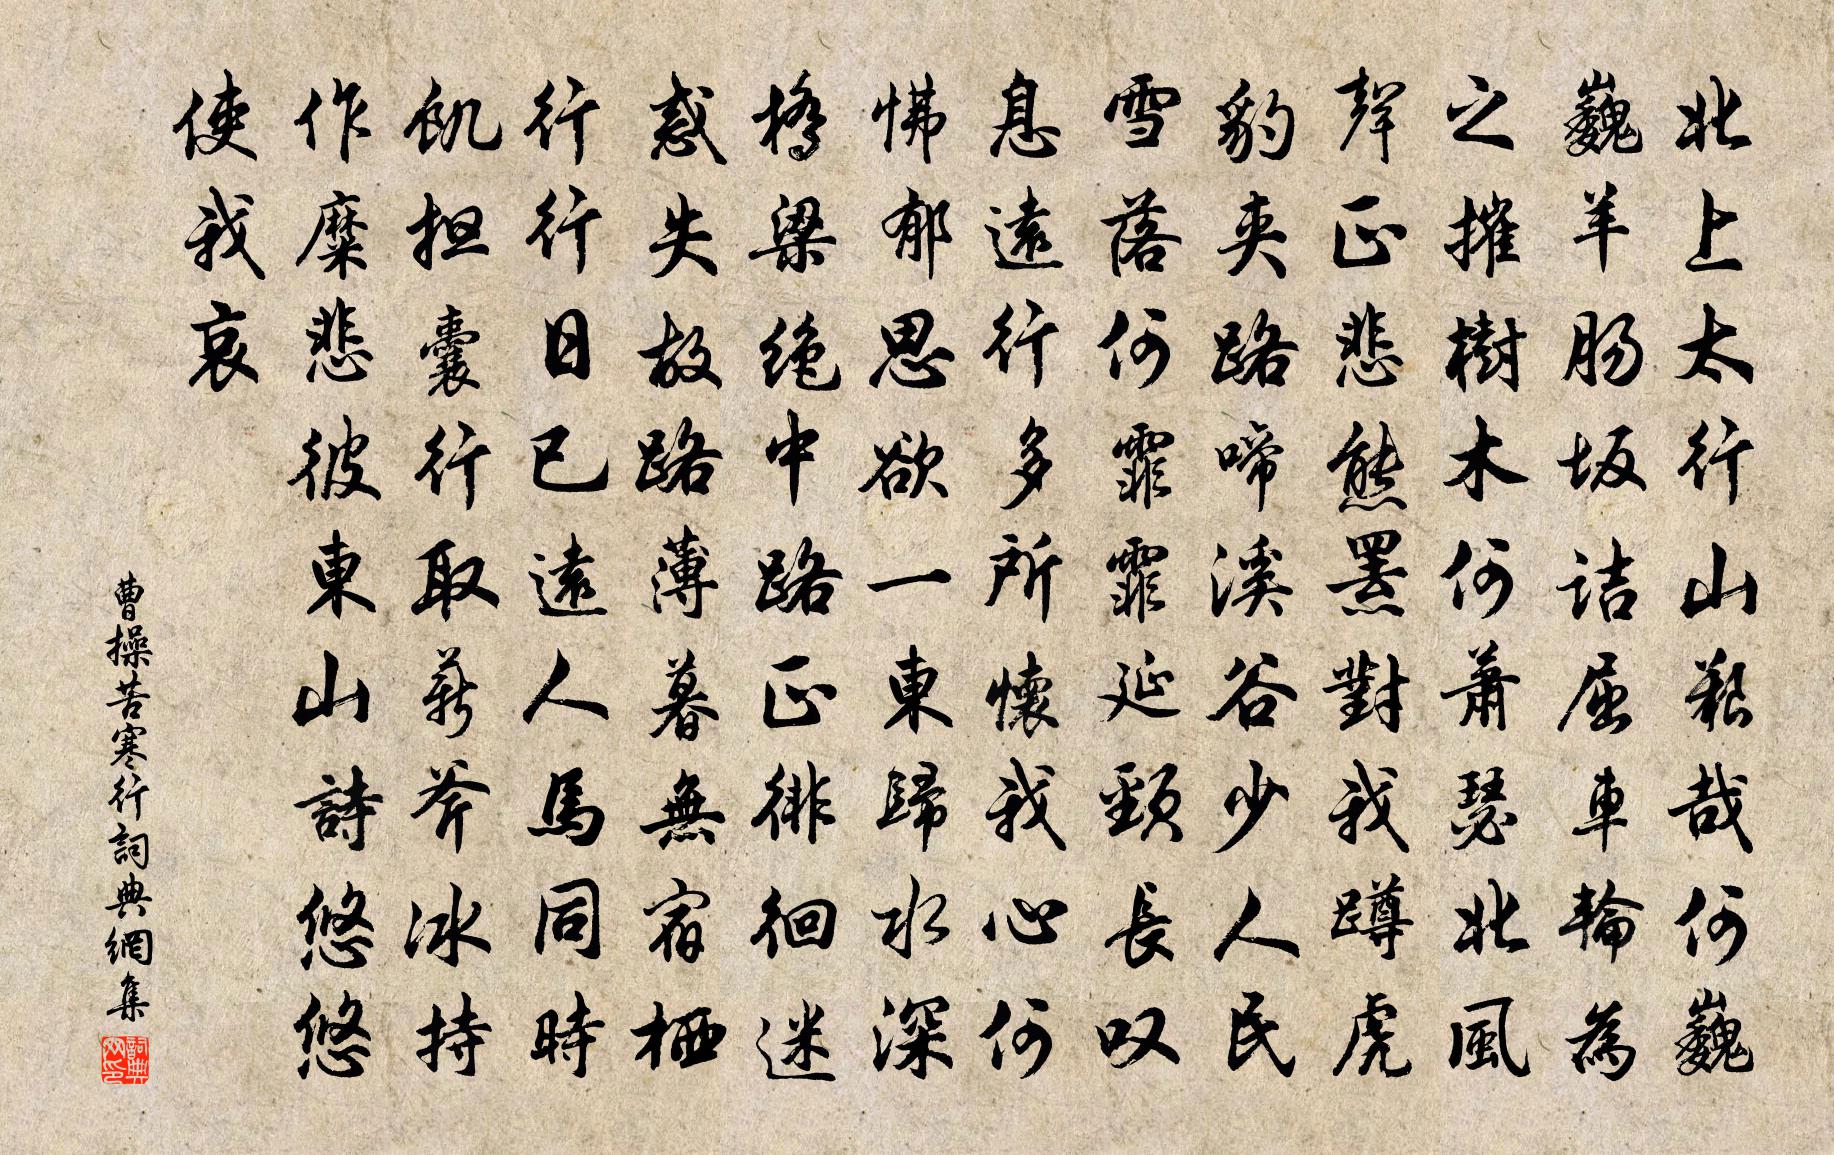 北上太行山艱哉何巍
巍羊腸坂詰屈車輪為
之摧樹木何蕭瑟北風
聲正悲熊羆對我蹲虎
豹夾路啼溪谷少人民
雪落何霏霏延頸長叹
息遠行多所懷我心何
怫郁思欲一東歸水深
橋梁絕中路正徘徊迷
惑失故路薄暮無宿栖
行行日已遠人馬同時
飢担囊行取薪斧冰持
作糜悲彼東山詩悠悠
使我哀
曹操苦寒行詞典網集
詞典
网印